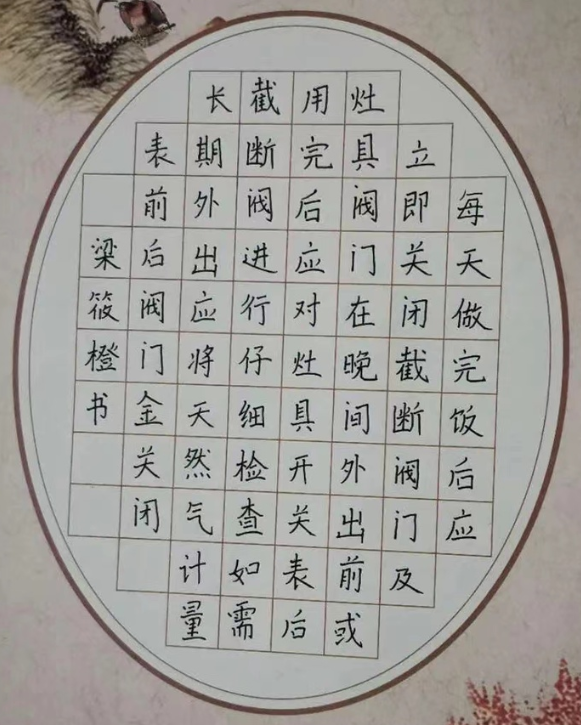 每天做完饭后应
立即关闭截断阀门及
灶具阀门在晚间外出前或
用完后应对灶具开关表后
截断阀进行仔细检查如需
长期外出应将天然气计量
表前后阀门金关闭
梁筱橙书